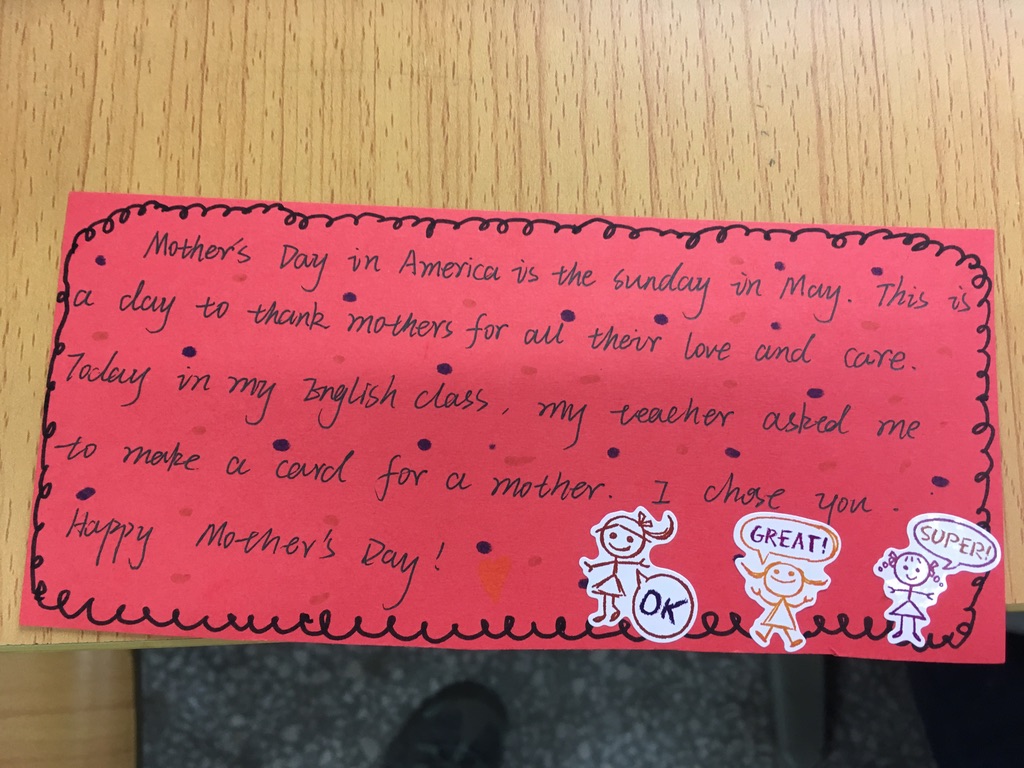 Mother's Day in America is the sunday in May. This is
a day to thank mothers for all their love and care.
Today in my English class, my teacher asked me
to make a card for a mother. I chose you.
Happy Mother's Day!
OK
GREAT!
SUPER!